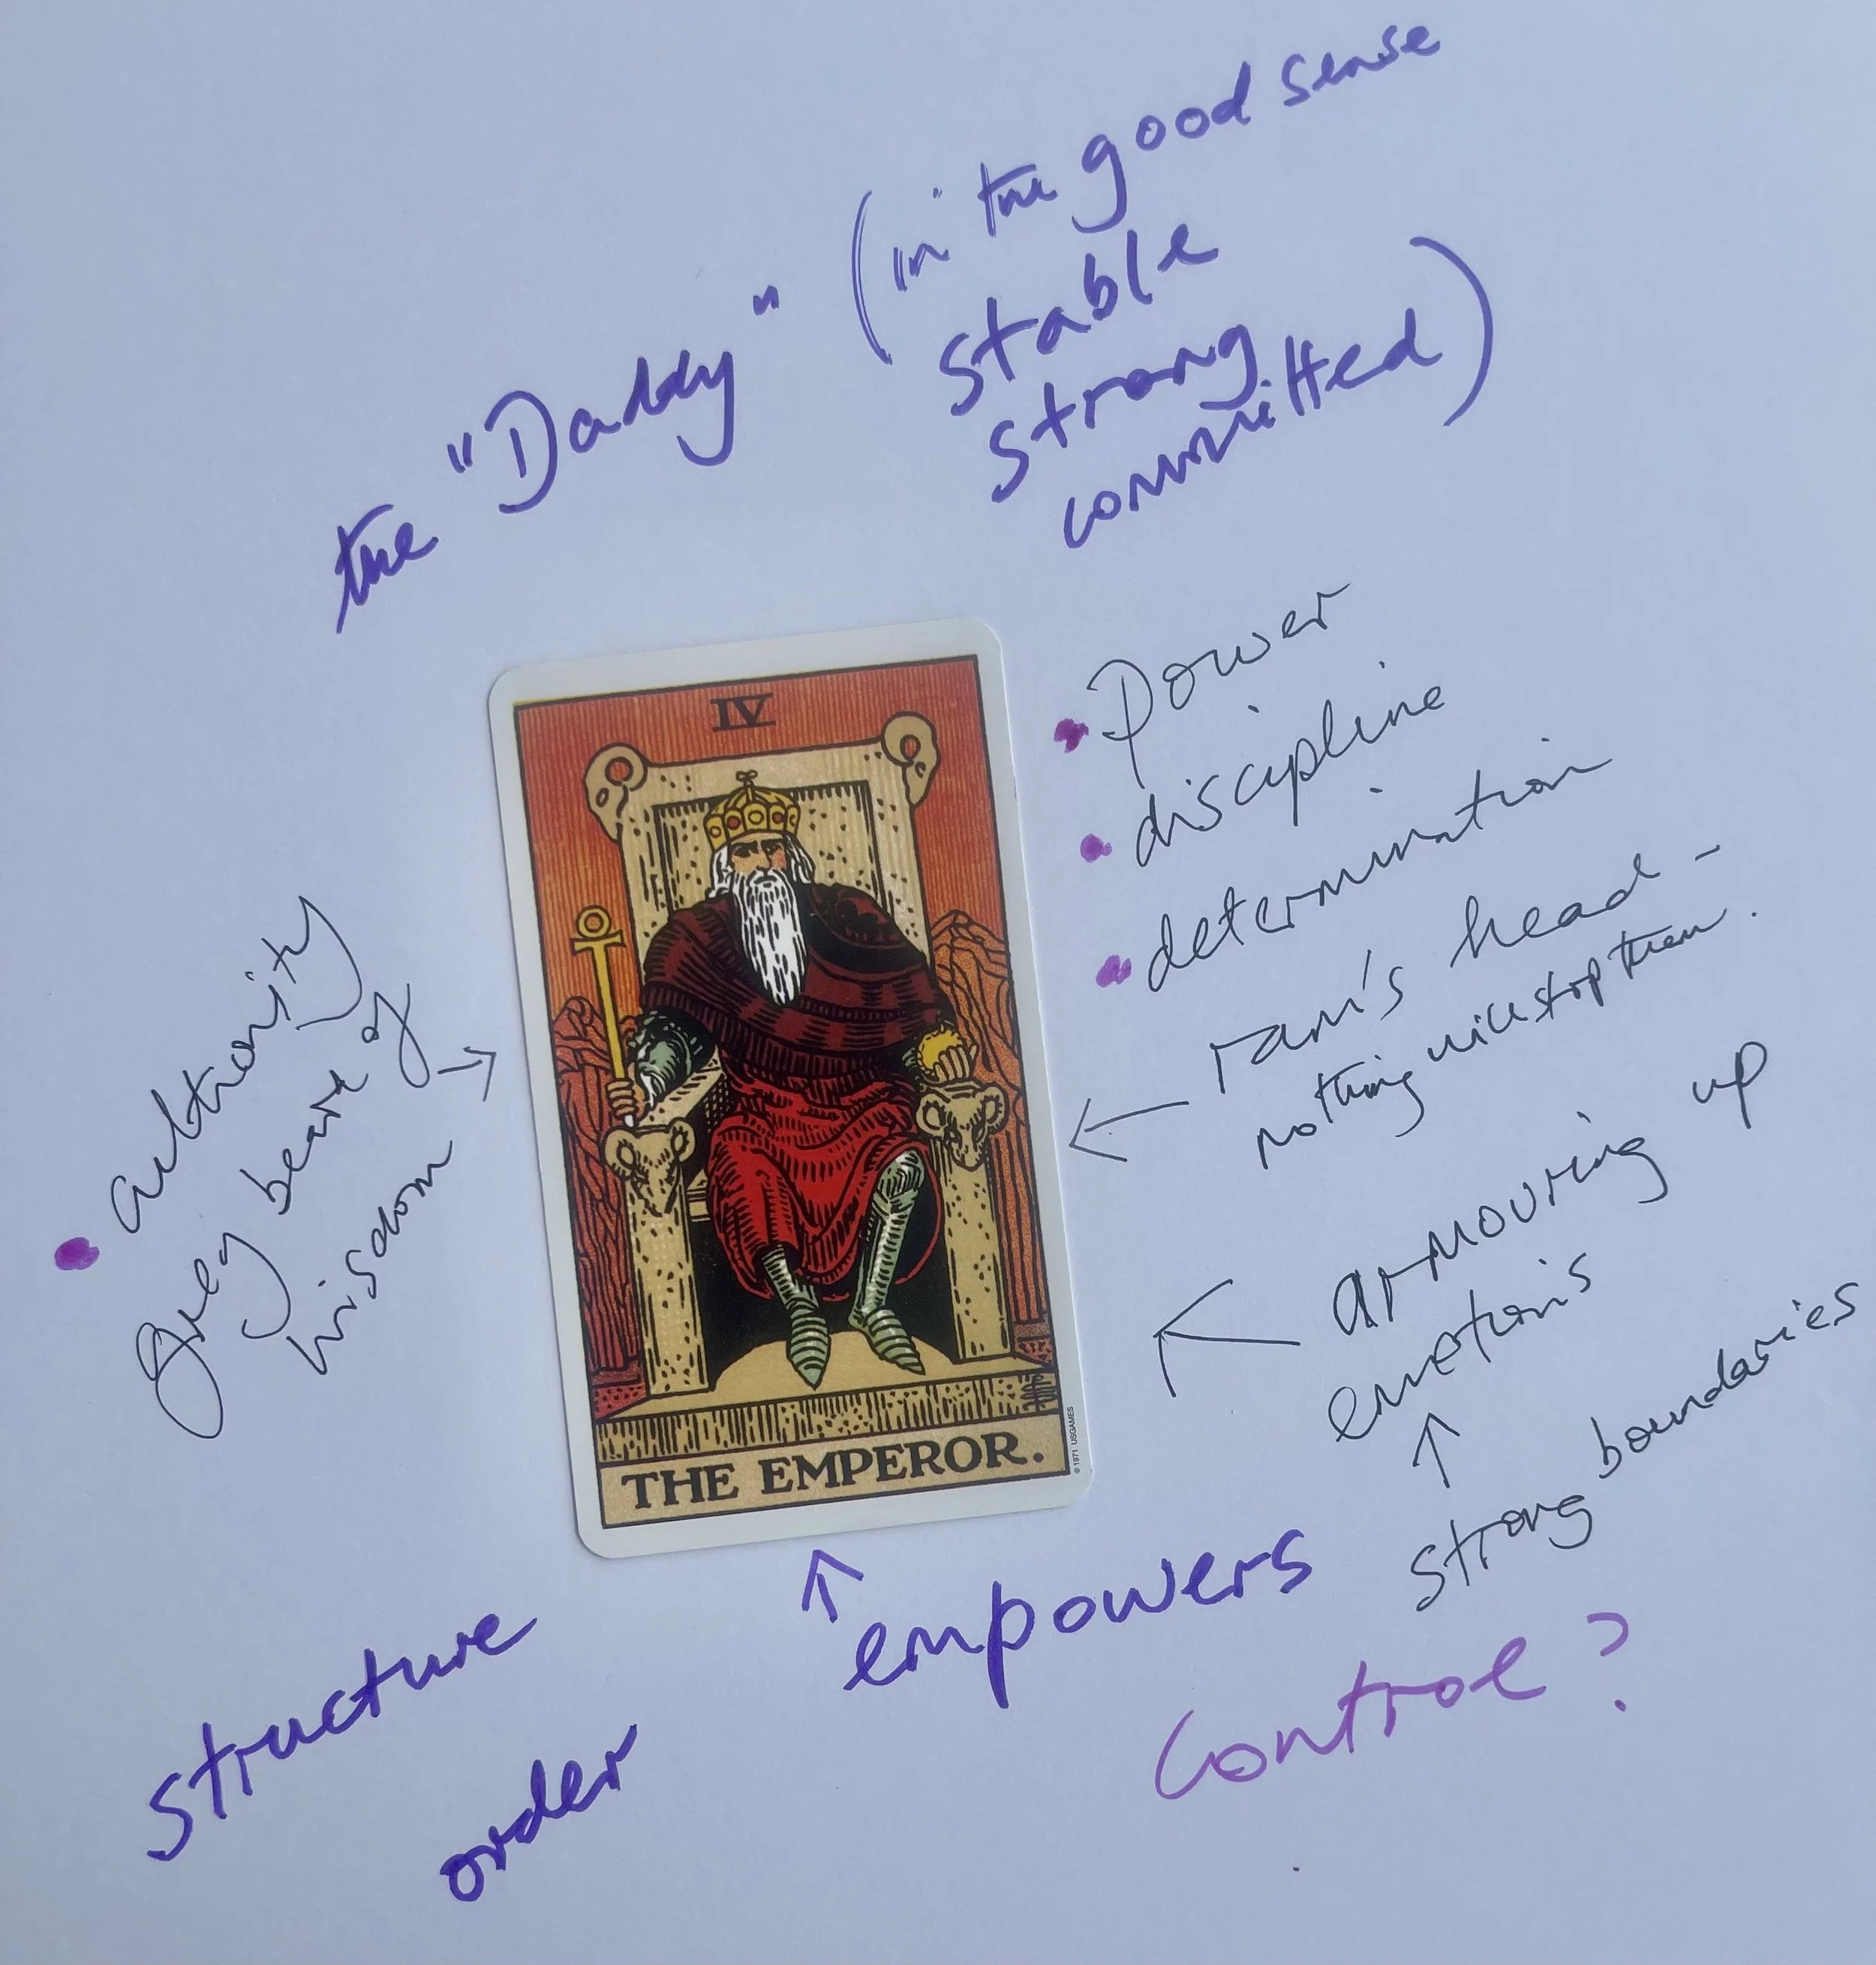 the "Daddy" (in the good sense
stable
strong
committed)
• Power
• discipline
• determination
ram's head -
nothing will stop them.
• authority
grey beard of
wisdom
IV
THE EMPEROR.
© 1971 USGAMES
armouring up
emotions
strong boundaries
empowers
control?
structure
order